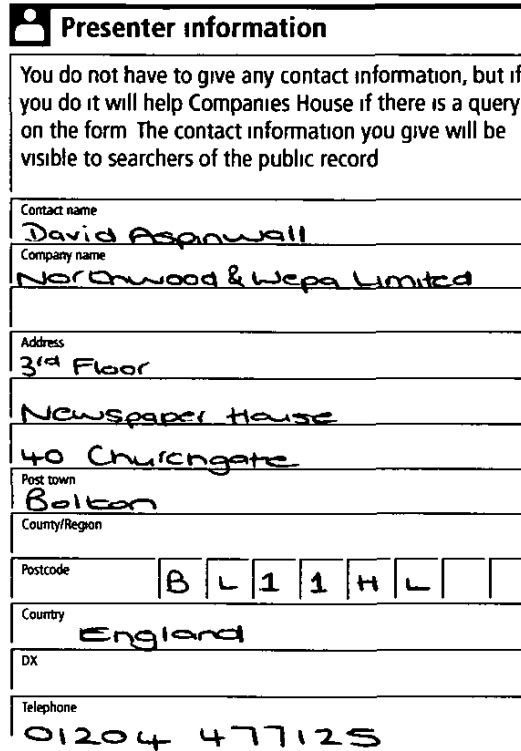 Presenter information
You do not have to give any contact information, but if
you do it will help Companies House if there is a query
on the form The contact information you give will be
visible to searchers of the public record
Contact name
David Aspinwall
Company name
Northwood & Wepa Limited
Address
3rd Floor
Newspaper House
40 Churchgate
Post town
Bolton
County/Region
Postcode
BL1 1HL
Country
England
DX
Telephone
01204 477125